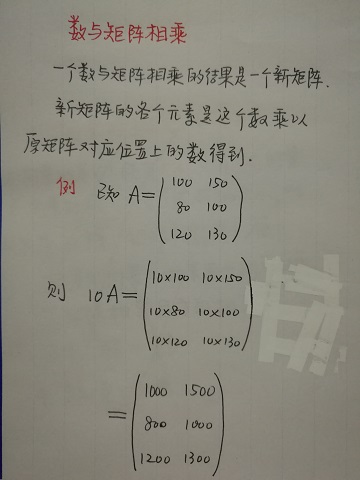 数与矩阵相乘
一个数与矩阵相乘的结果是一个新矩阵.
新矩阵的各个元素是这个数乘以
原矩阵对应位置上的数得到.
例 已知 A=
100 150
80 100
120 130
则 10A=
10×100 10×150
10×80 10×100
10×120 10×130
=
1000 1500
800 1000
1200 1300